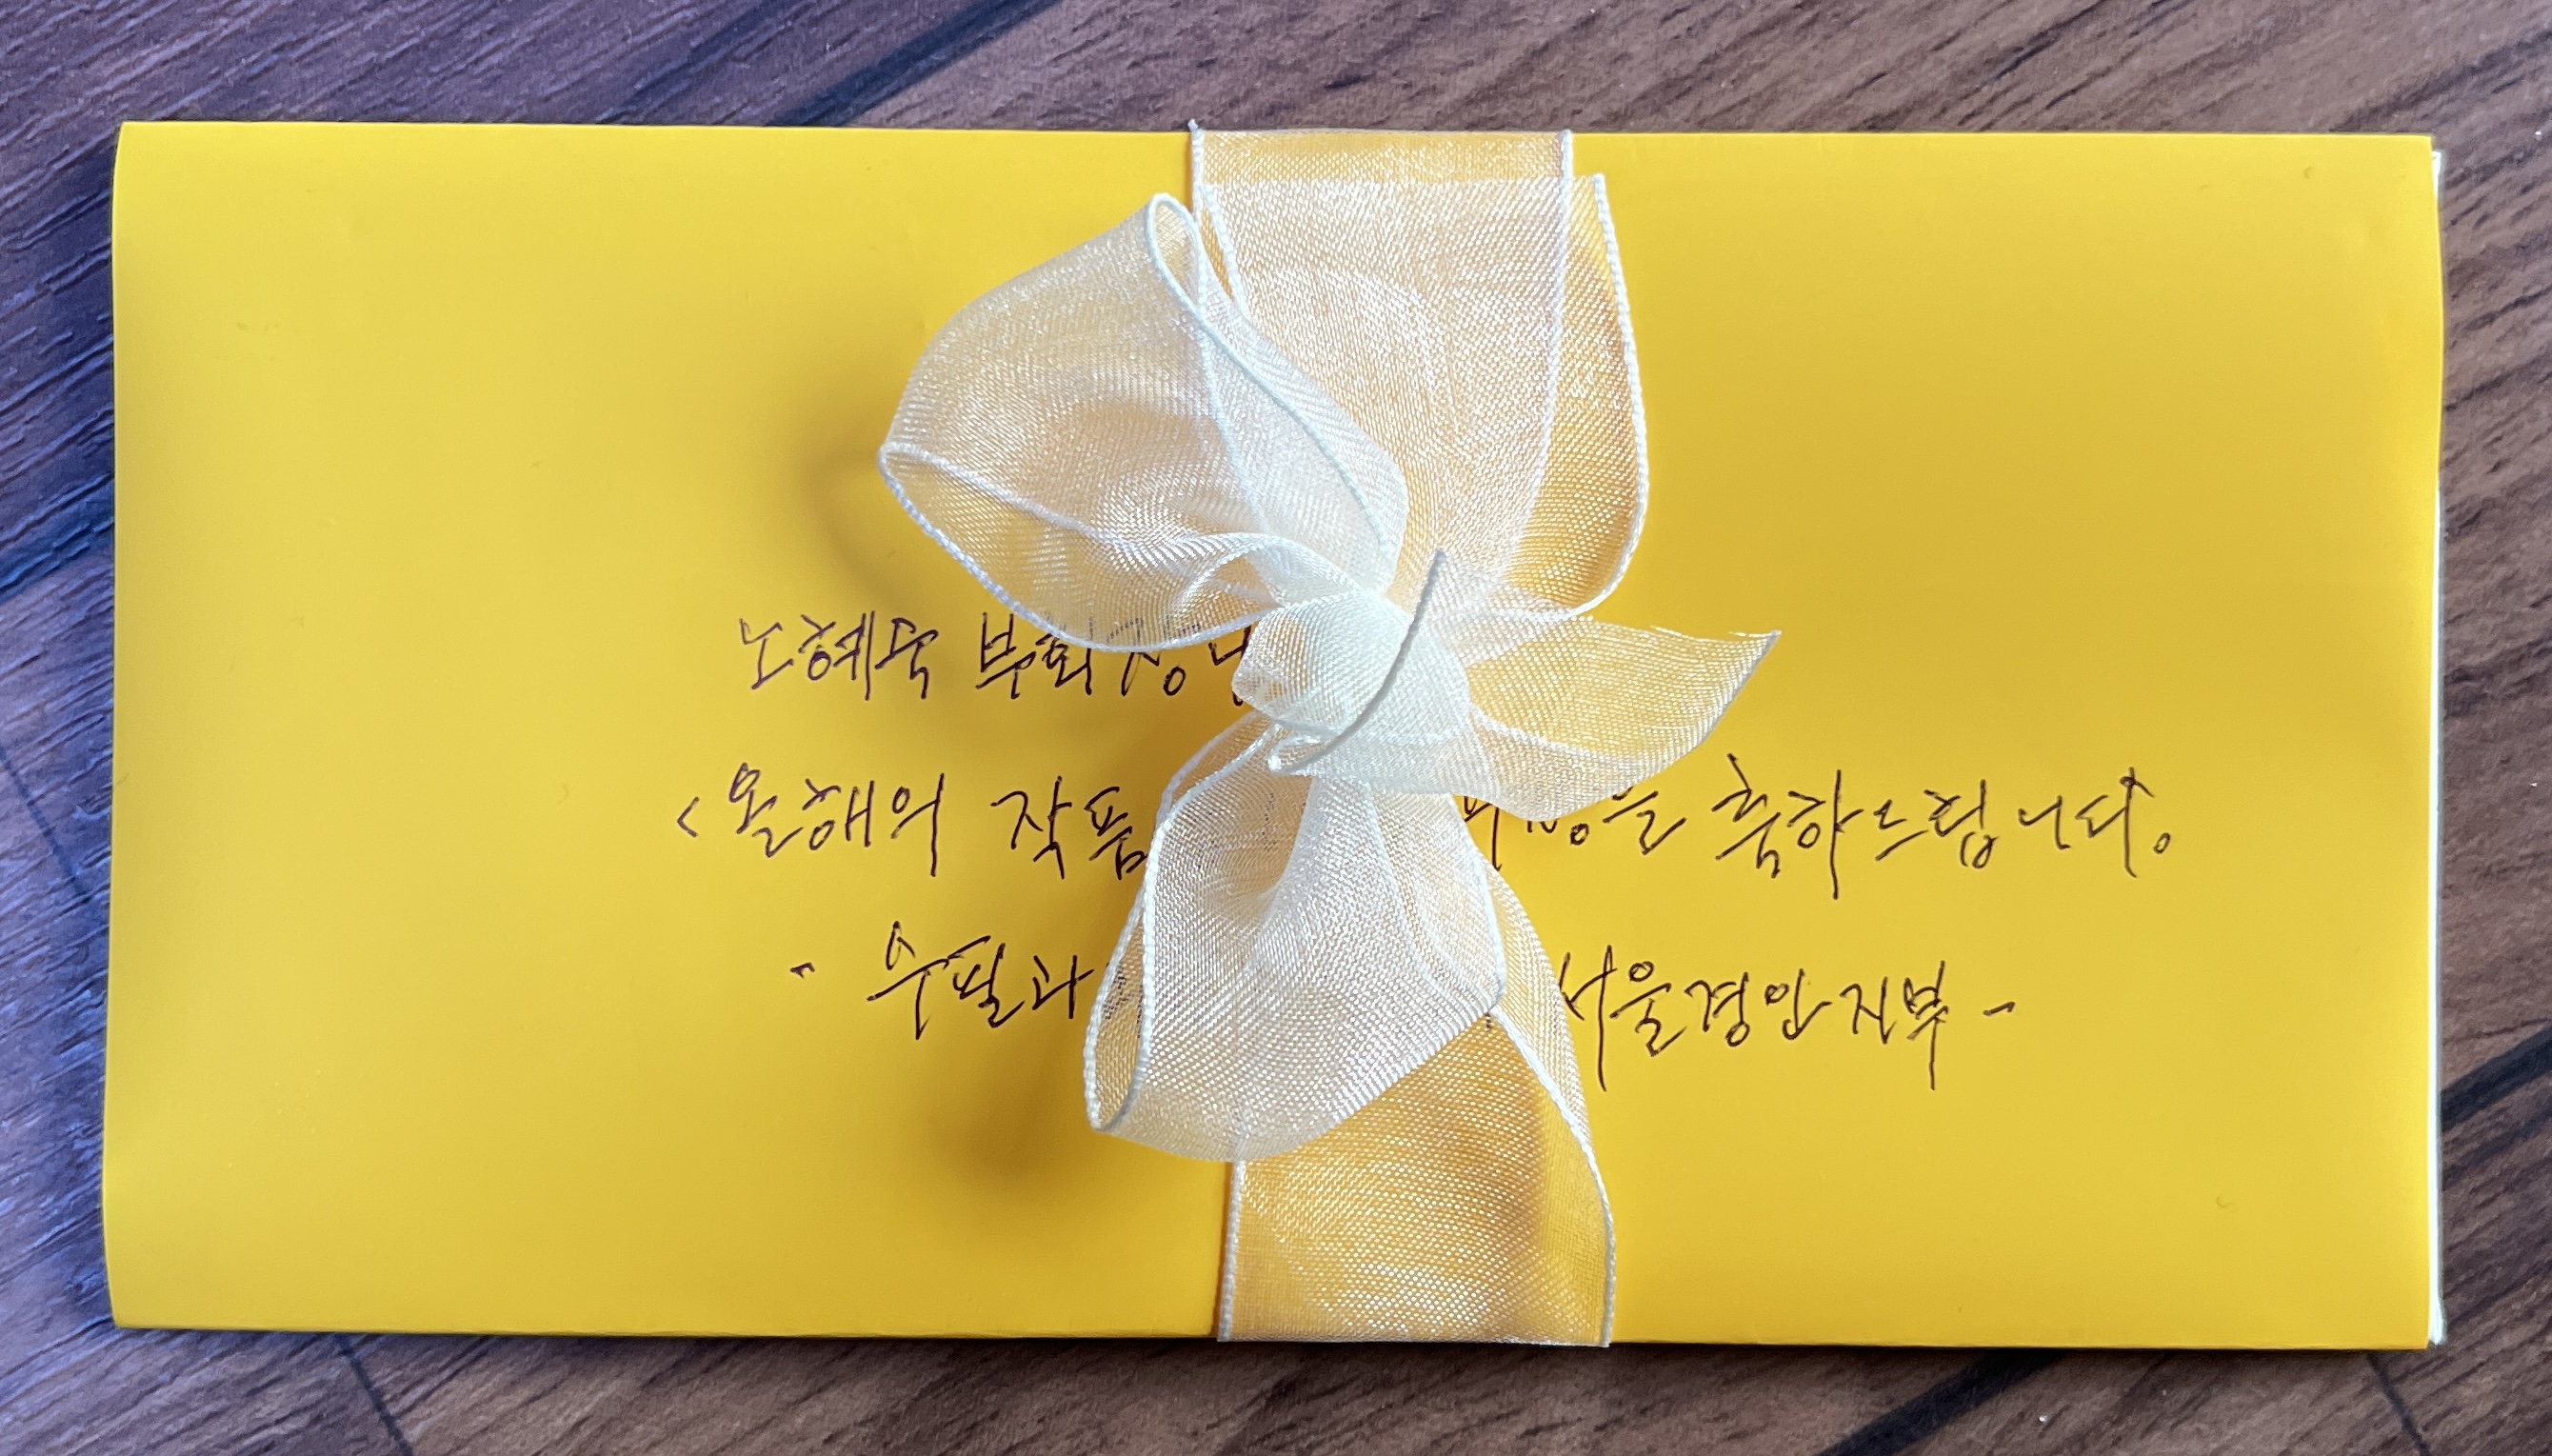 노혜숙 부회장님
<올해의 작품 축하드립니다.
- 수필과 서울경인지부 -